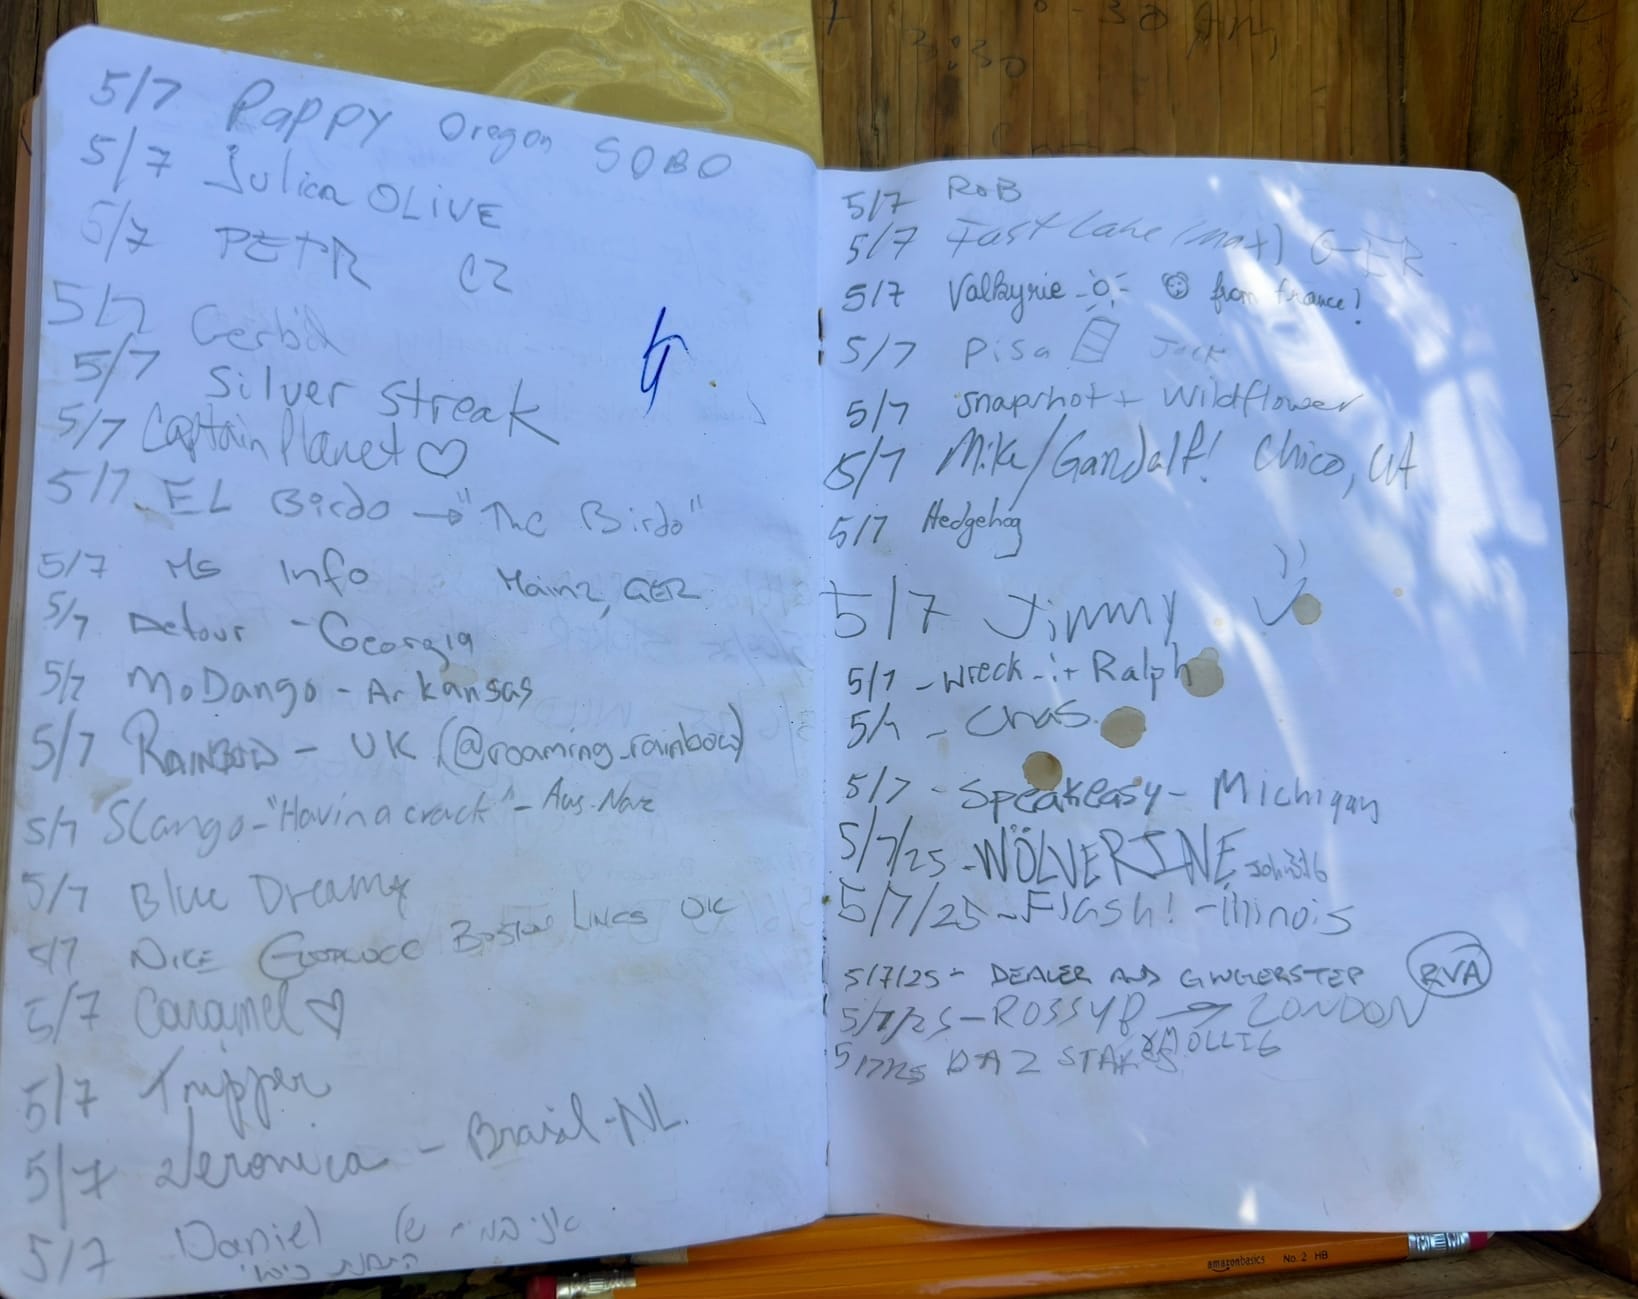 5/7 Pappy Oregon SOBO
5/7 Julian OLIVE
5/7 PETR CZ
5/7 Gerbil
5/7 Silver streak
5/7 Captain Planet ♡
5/7 EL Birdo → "The Birdo"
5/7 Ms Info Mainz, GER
5/7 Detour - Georgia
5/7 MoDango - Arkansas
5/7 RAINBOW - UK (@roaming_rainbow)
5/7 Slango - "Havin a crack" - Aus
5/7 Blue Dream
5/7 NICE LINCS UK
5/7 Caramel ♡
5/7 Tripper
5/7 Veronica - Brasil - NL.
5/7 Daniel
5/7 ROB
5/7 Fast Lane (Max) GER
5/7 Valkyrie from france!
5/7 Pisa Jack
5/7 snapshot + Wildflower
5/7 Mike/Gandalf! Chico, CA
5/7 Hedgehog
5/7 Jimmy
5/7 - Wreck-it Ralph
5/7 - Chas.
5/7 - Speakeasy - Michigan
5/7/25 - WÖLVERINE John 3:16
5/7/25 - Flash! - Illinois
5/7/25 - DEALER AND GINGERSTEP RVA
5/7/25 - ROSSYP → LONDON
5/7/25 DAZ & MOLLIE
amazonbasics No. 2 HB